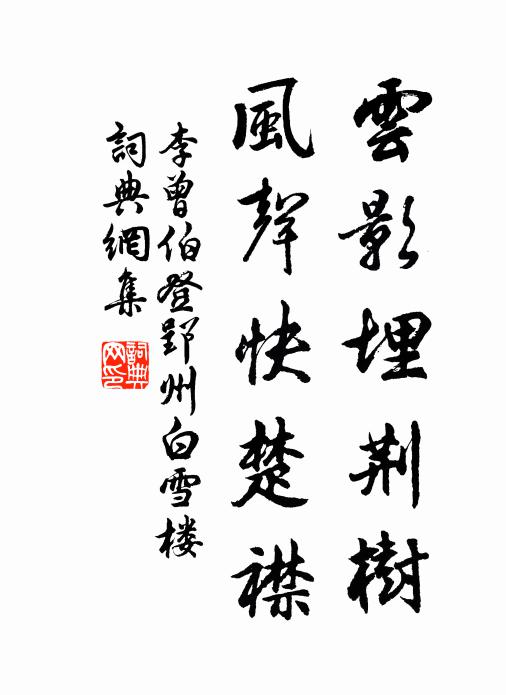 雲影埋荆樹
風聲快楚襟
李曾伯登郢州白雪楼
詞典網集
詞典网印